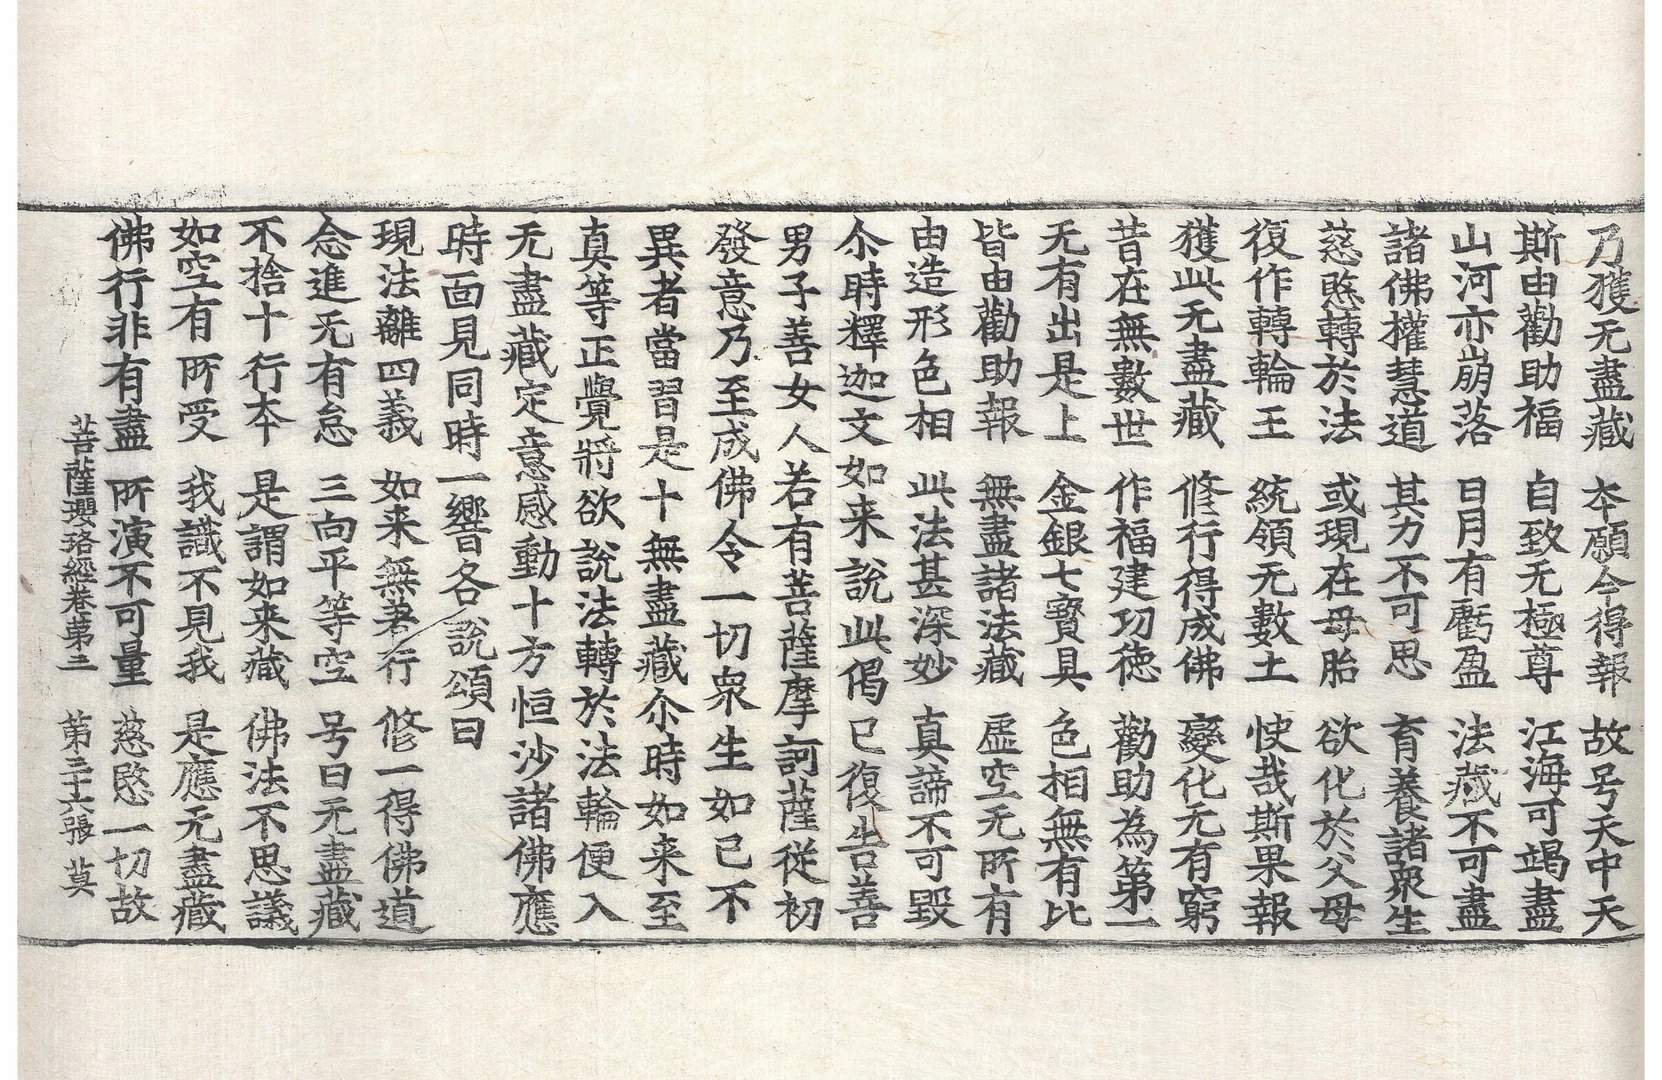 乃獲无盡藏 本願今得報 故号天中天
斯由勸助福 自致无極尊 江海可竭盡
山河亦崩落 日月有虧盈 法藏不可盡
諸佛權慧道 其力不可思 育養諸衆生
慈愍轉於法 或現在母胎 欲化於父母
復作轉輪王 統領无數土 快哉斯果報
獲此无盡藏 修行得成佛 變化无有窮
昔在無數世 作福建功徳 勸助為第一
无有出是上 金銀七寶具 色相無有比
皆由勸助報 無盡諸法藏 虛空无所有
由造形色相 此法甚深妙 真諦不可毀
尒時釋迦文如来說此偈已復告善
男子善女人若有菩薩摩訶薩從初
發意乃至成佛令一切衆生如已不
異者當習是十無盡藏尒時如来至
真等正覺將欲說法轉於法輪便入
无盡藏定意感動十方恒沙諸佛應
時面見同時一響各說頌曰
現法離四義 如来無著行 修一得佛道
念進无有怠 三向平等空 号曰无盡藏
不捨十行本 是謂如来藏 佛法不思議
如空有所受 我識不見我 是應无盡藏
佛行非有盡 所演不可量 慈愍一切故
菩薩瓔珞經卷第三 第三十六張 莫